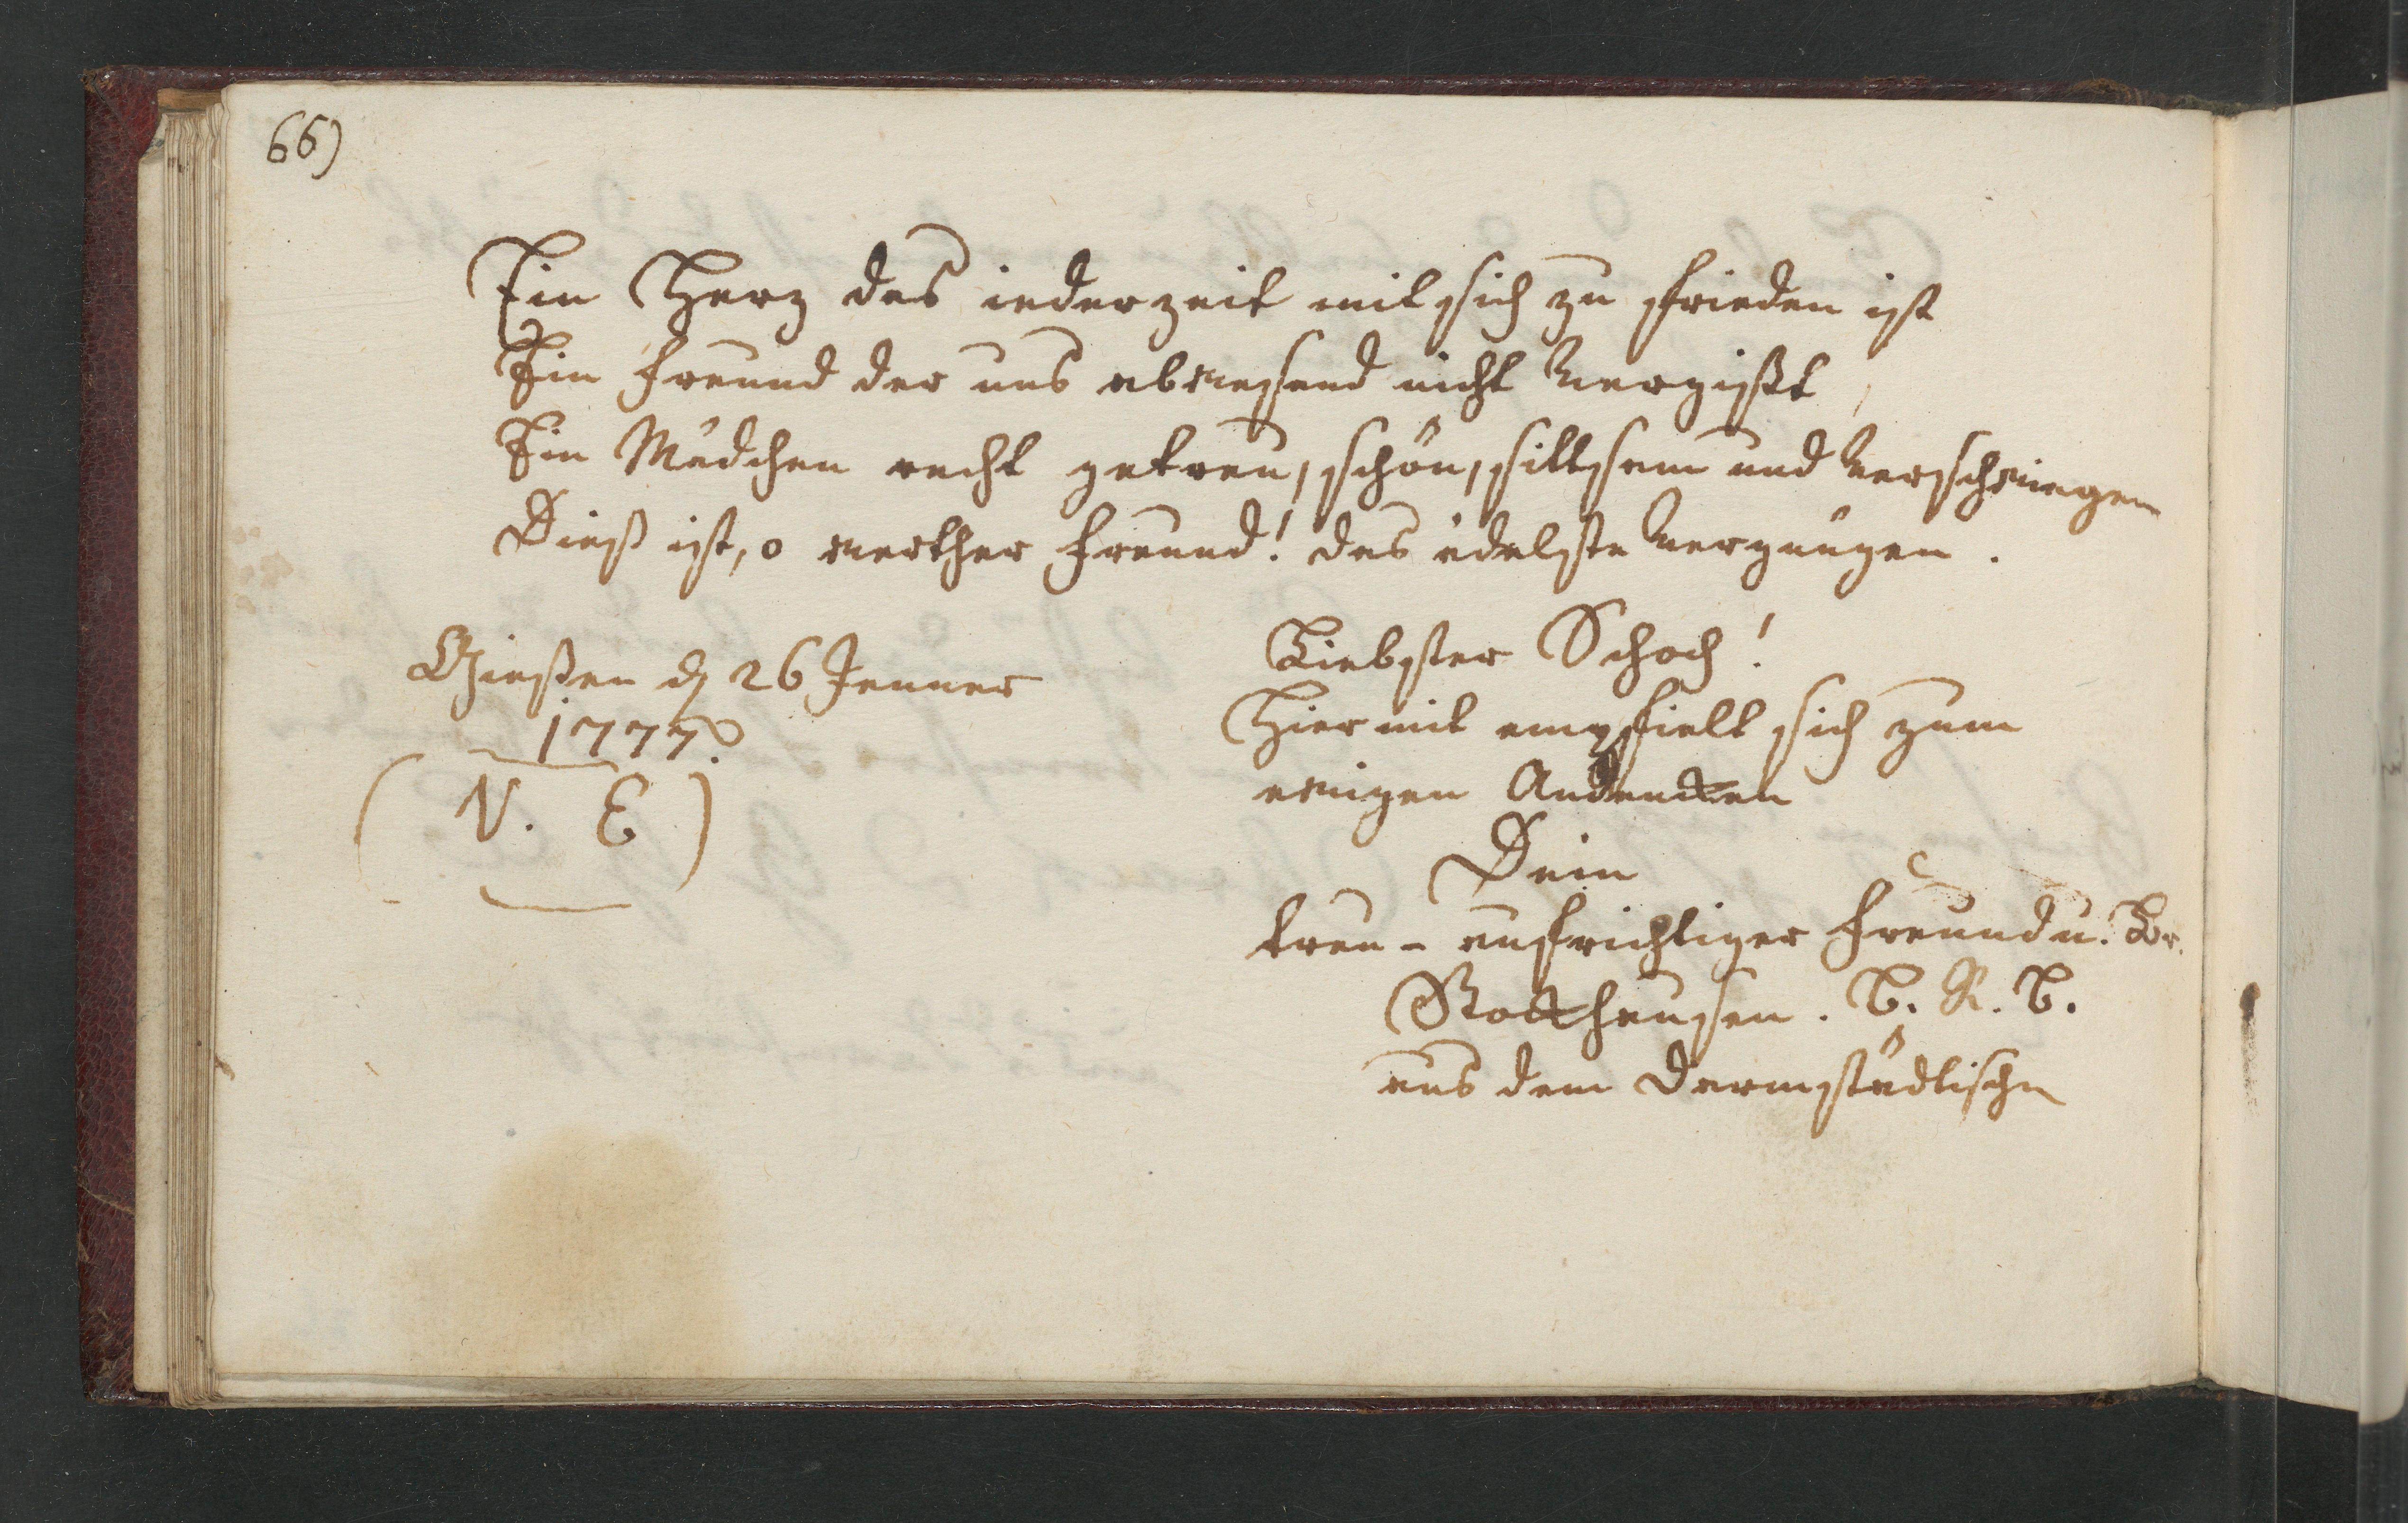 66)
Ein Herz das iederzeit mit sich zu frieden ist
Ein Freund der uns abwesend nicht vergißt,
Ein Mädchen recht getreu, schön, sittsam und verschwiegen
Dieß ist, o werther Freund! das edelste Vergnügen.
Giesen d 26 Jenner
1777.
(V. E)
Liebster Schoch!
Hiermit empfielt sich zum
ewigen Andencken
Dein
treu-aufrichtiger Freund u. Br.
Stockhausen. B. R. B.
aus dem Darmstädtischn